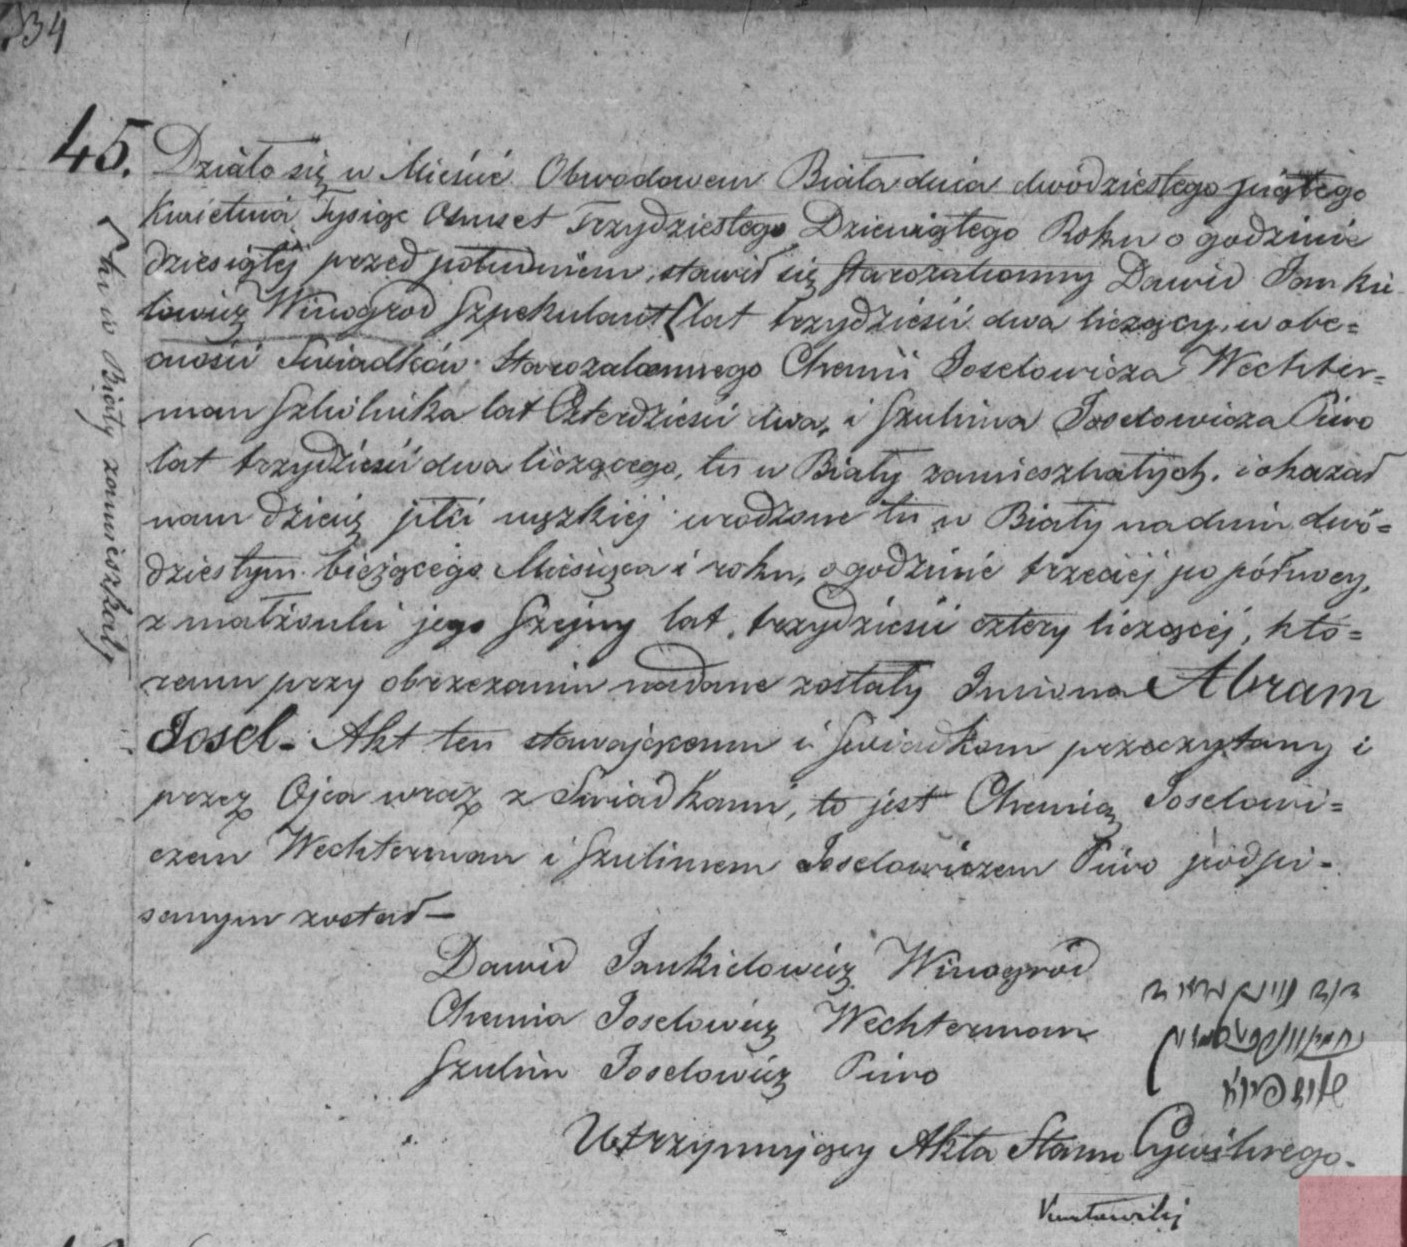 34
45. Działo się w Mieście Obwodowem Biała dnia dwódziestego piątego
Kwietnia Tysiąc Osmset Trzydziestego Dziewiątego Roku o godzinie
dziesiątej przed południem, stawił się starozakonny Dawid Jankie
lowicz Winogrod Szpekulant lat trzydzieści dwa liczący, w obe=
cności Swiadków Starozakonnego Chemii Joselowicza Wechter=
man Szkólnika lat Czterdzieści dwa, i Szulima Joselowicza Piwo
lat trzydzieści dwa liczącego, tu w Biały zamieszkałych. i okazał
nam dziecię płci męzkiej urodzone tu w Biały na dniu dwó=
dziestym bieżącego Miesiąca i roku, o godzinie trzeciej po północy,
z małżonki jego Szejny lat, trzydzieści cztery liczącej, któ=
remu przy obrzezaniu nadane zostały Imiona Abram
Josel. Akt ten stawającemu i swiadkom przeczytany i
przez Ojca wraz z Swiadkami, to jest Chemią Joselowi=
czem Wechterman i Szulimem Joselowiczem Piwo podpi=
sanym został
tu w Biały zamieszkały
Dawid Jankielowicz Winogród
Chemia Joselowicz Wechterman
Szulim Joselowicz Piwo
דוד
Utrzymujący Akta Stanu Cywilnego.